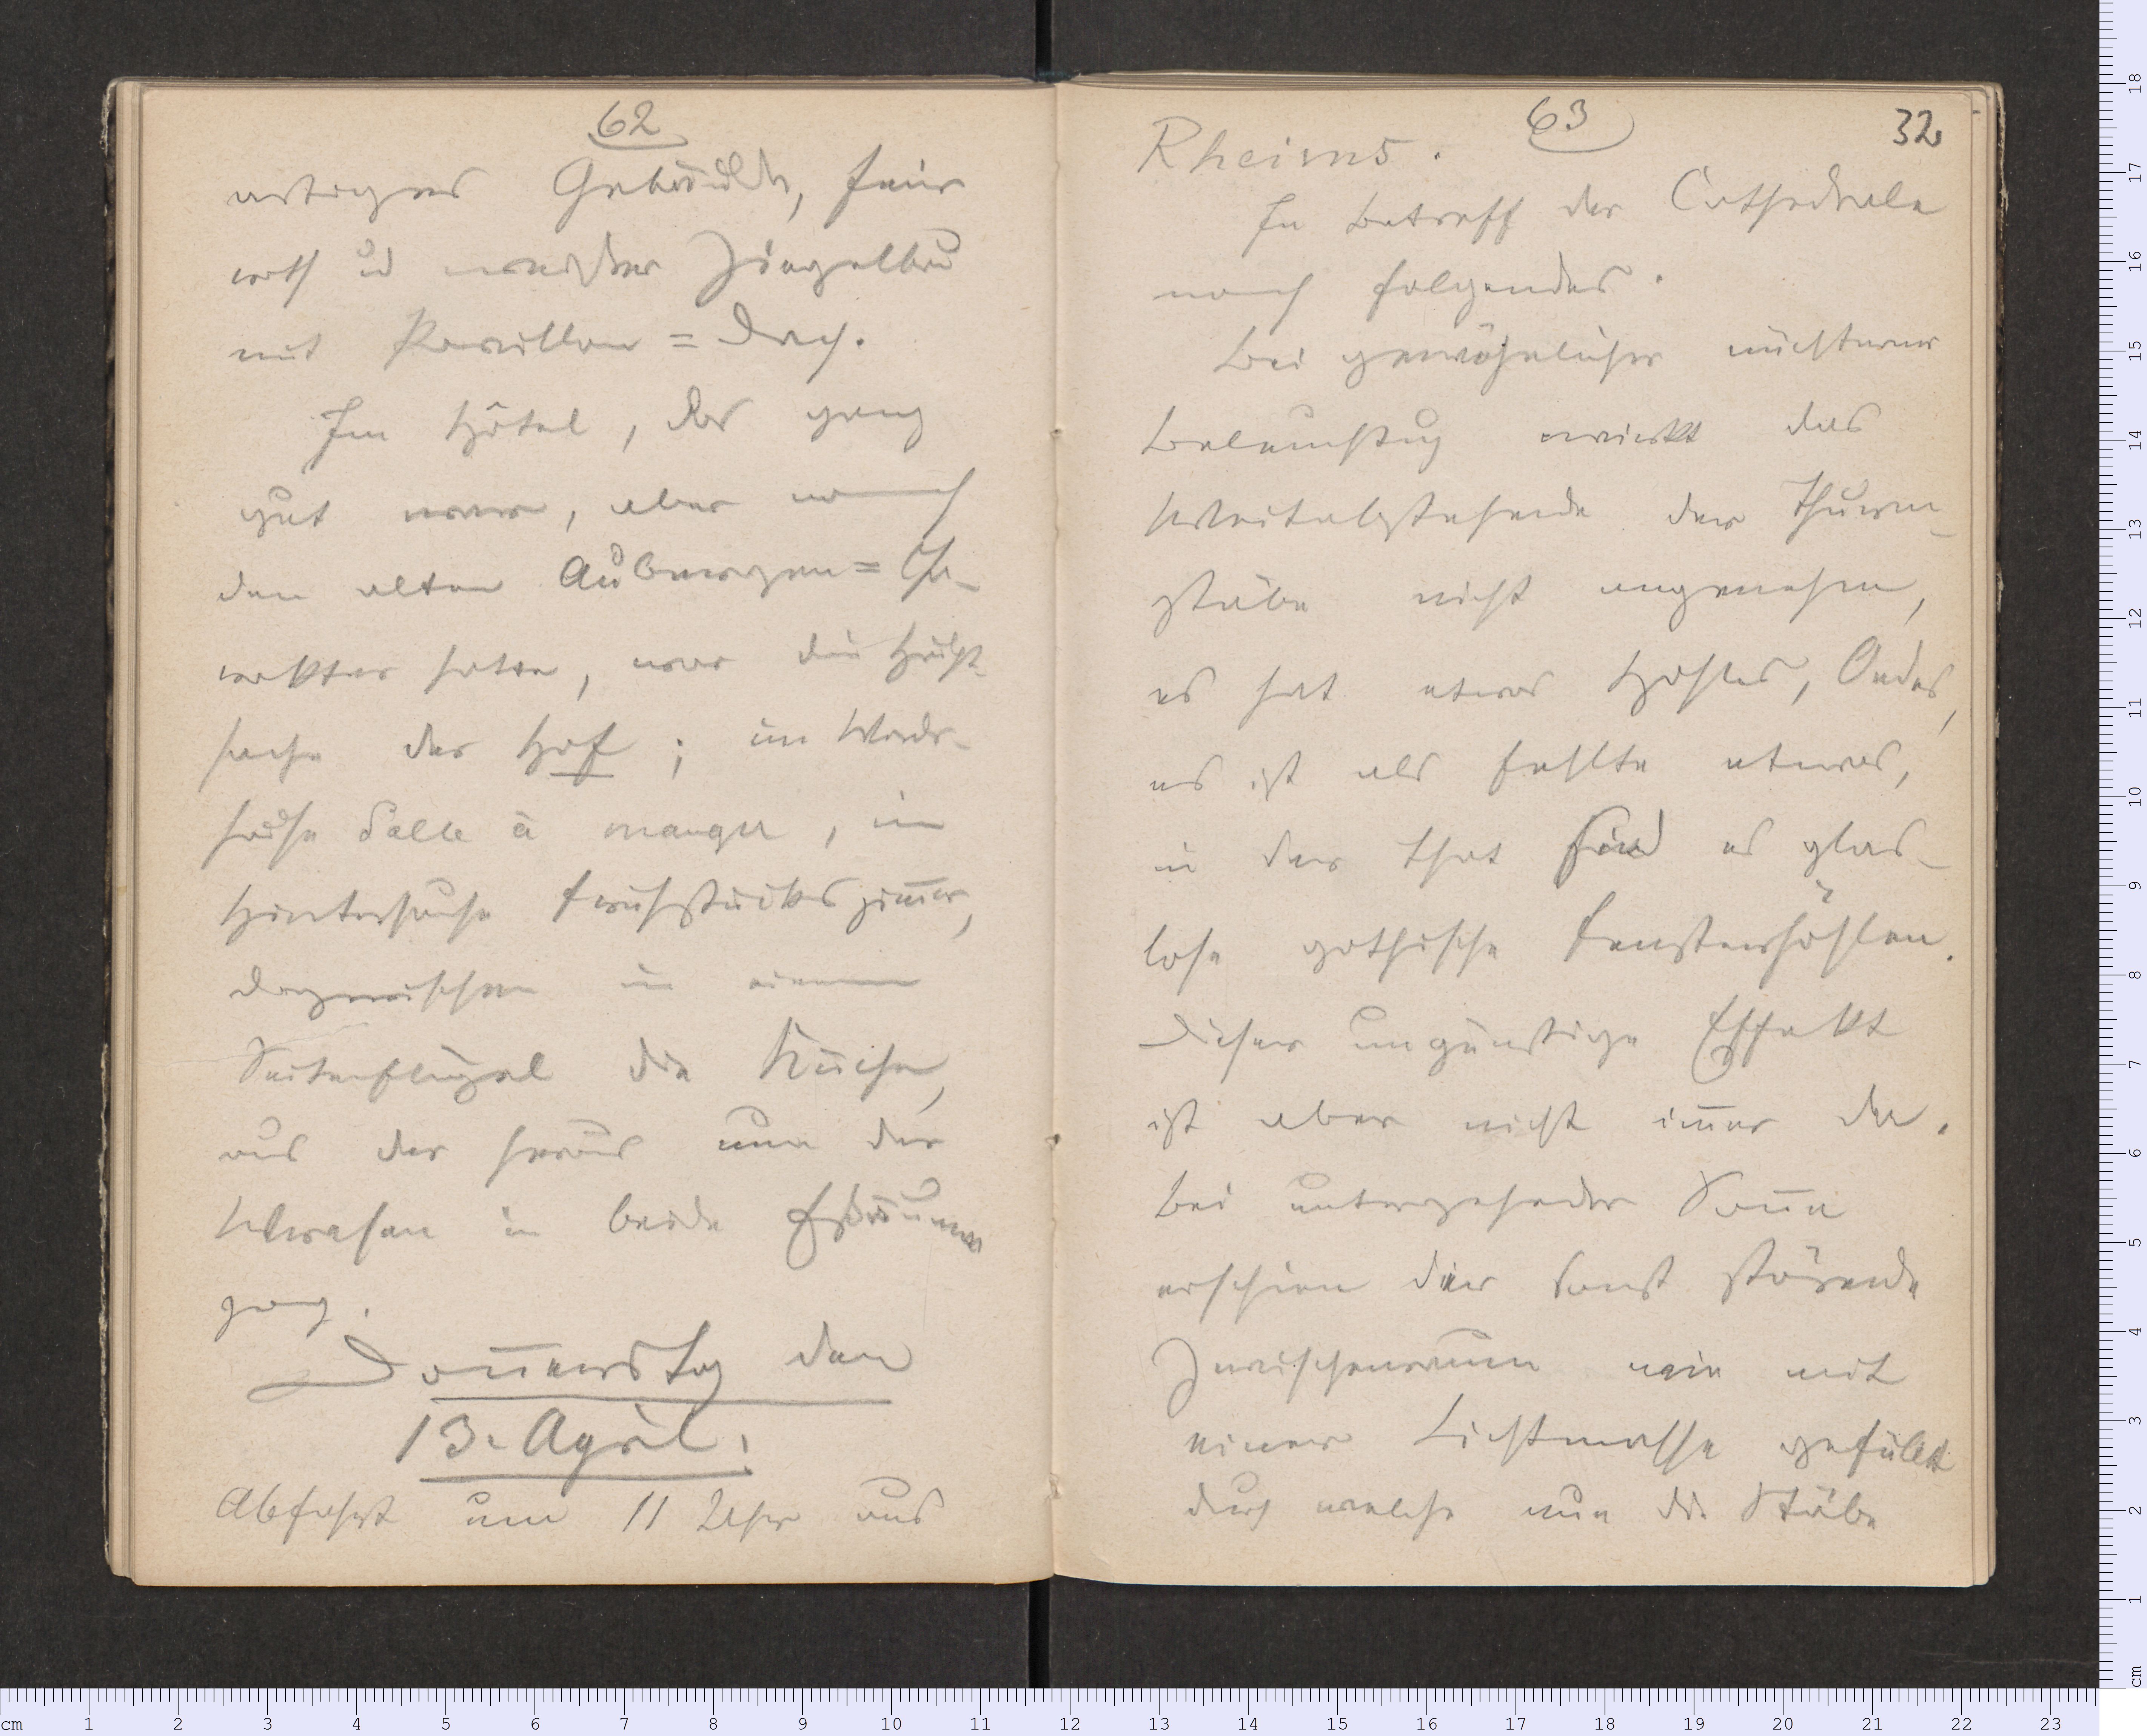 62
artiges Gebäude, fein
roth u weißer Ziegelbau
mit Pavillon=Dach.
Im Hôtel, das ganz
gut war, aber noch
den alten Aubergen=Cha-
rakter hatte, war die Haupt-
sache der Hof; im Vorder-
hause Salle à manger, im
Hinterhause Frühstückszimer,
dazwischen in einem
Seitenflügel die Küche,
aus der heraus nun der
Wrasen in beide Eßräume
zog.
Donerstag den
13. April.
Abfahrt um 11 Uhr aus
63
32
Rheims.
In Betreff der Cathedrale
noch folgendes.
Bei gewöhnlicher nüchterner
Beleuchtung wirkt das
Weitabstehende der Thurm-
stäbe nicht angenehm,
es hat etwas Hohles, Oedes,
es ist als fehlte etwas,
in der That sind es glas-
lose gothische Fensterhöhlen.
Dieser ungünstige Effekt
ist aber nicht imer da.
Bei untergehender Sonne
erschien der sonst störende
Zwischenraum wie mit
einer Lichtmasse gefüllt
durch welche nun die Stäbe